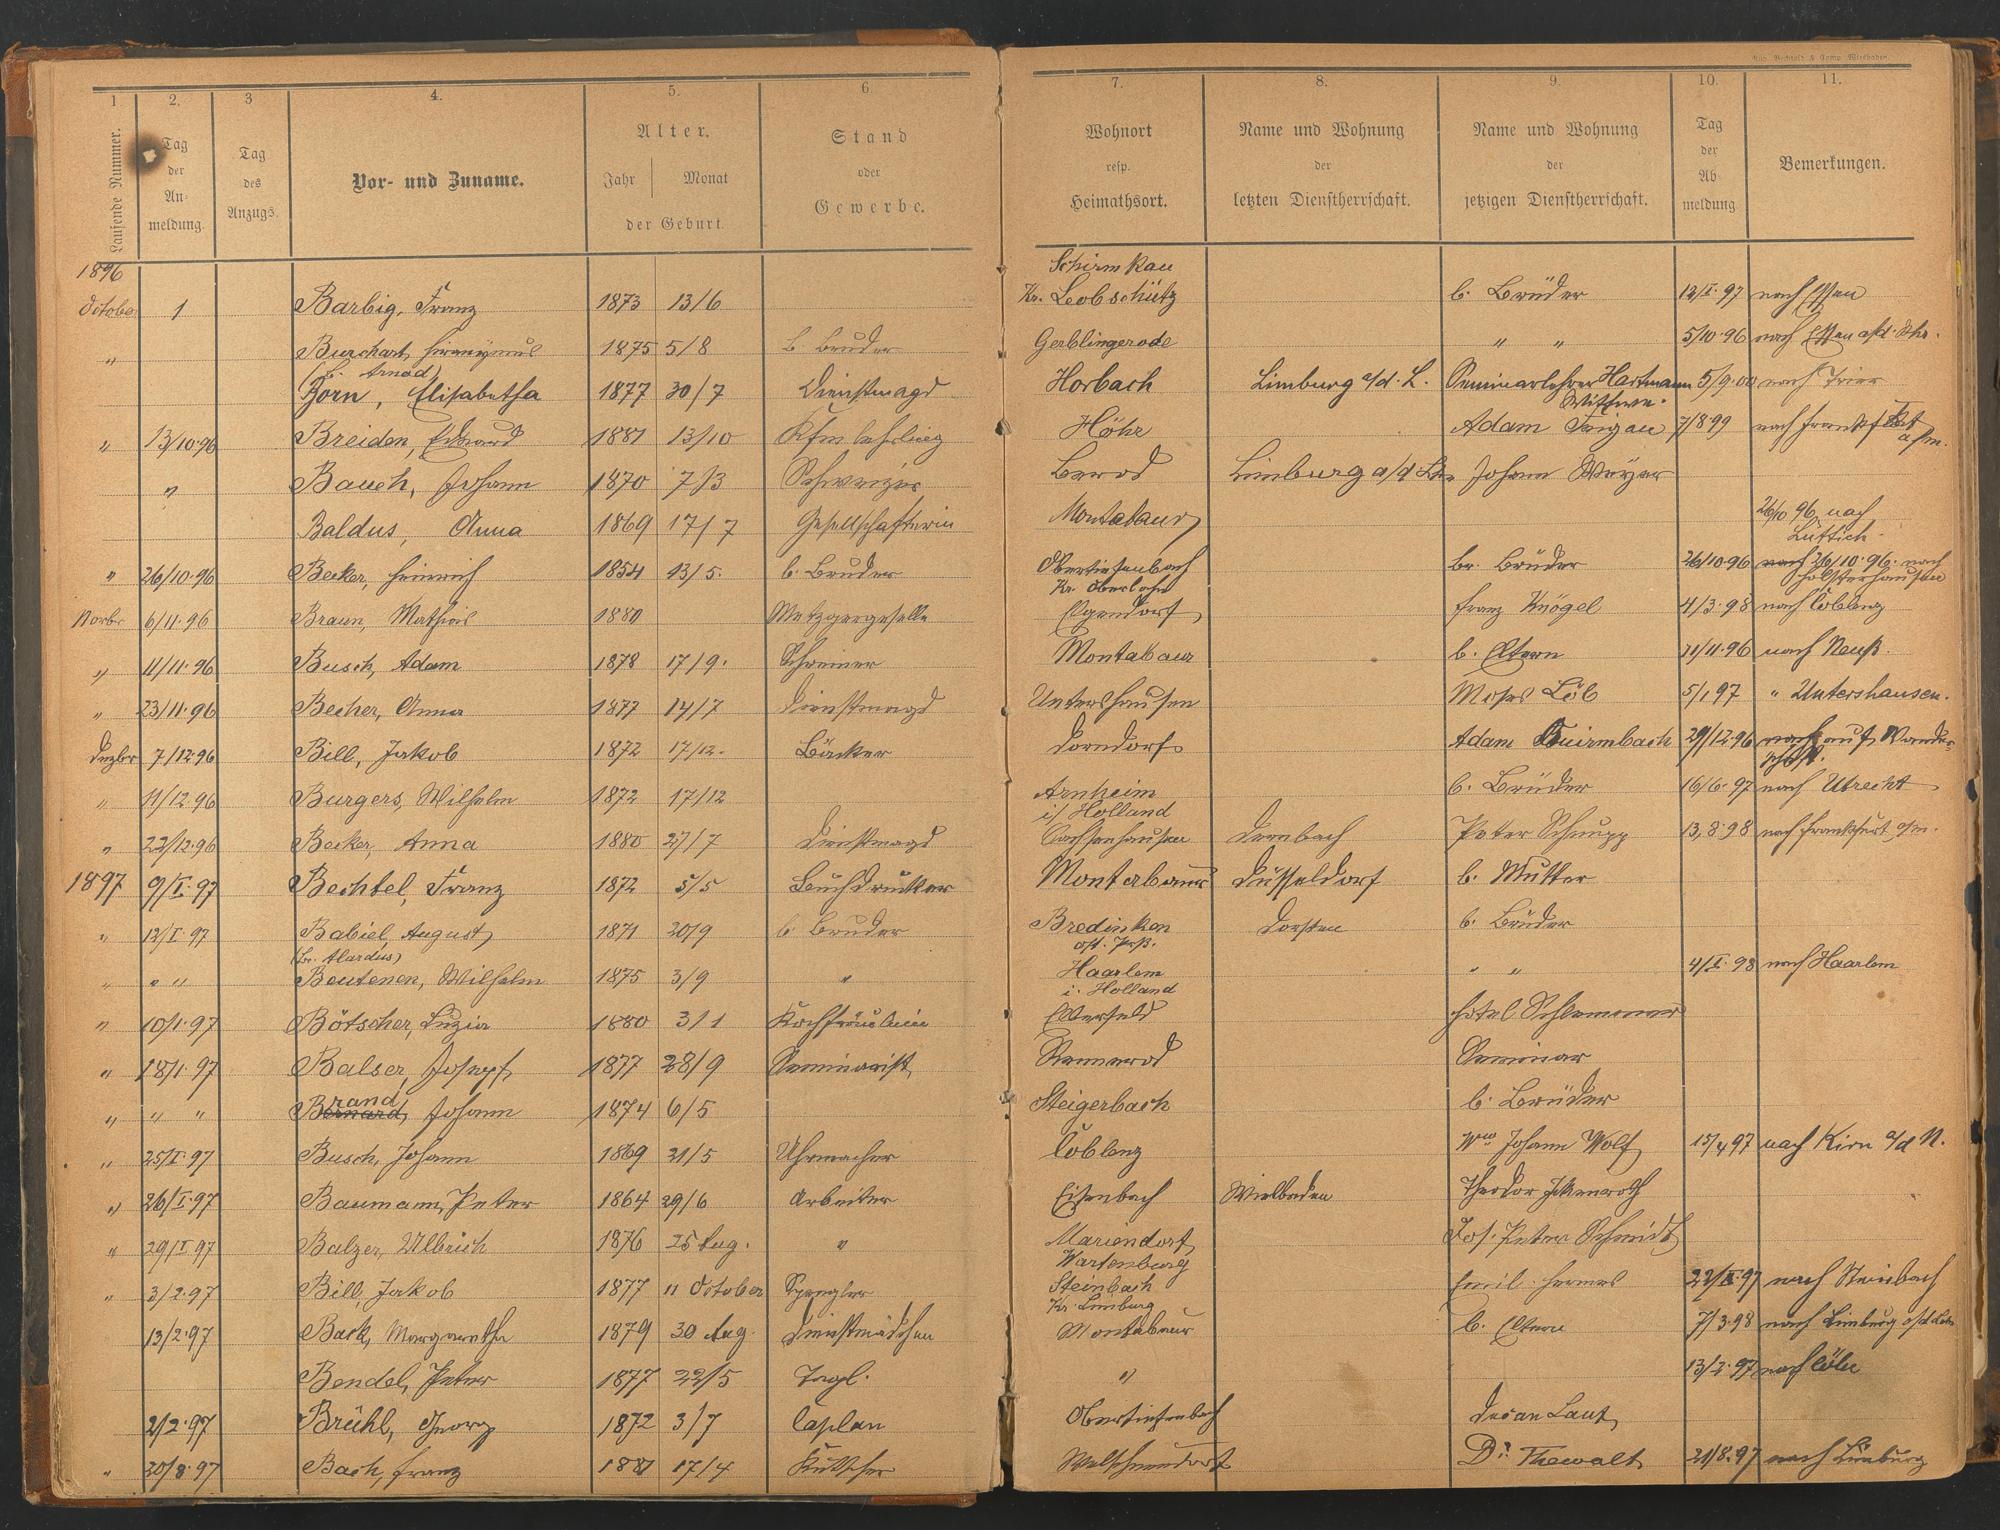 Rud. Bechtold & Comp. Wiesbaden.
1 2. 3 4. 5. 6 7. 8. 9. 10. 11.
Laufende Nummer. Tag der Anmeldung. Tag des Anzugs. Vor- und Zuname. Alter. Jahr Monat der Geburt. Stand oder Gewerbe. Wohnort resp. Heimathsort. Name und Wohnung der letzten Dienstherrschaft. Name und Wohnung der jetzigen Dienstherrschaft. Tag der Abmeldung Bemerkungen.
1896 Schirmkau
October 1 Barbig, Franz 1873 13/6 Kr. Leobschütz b. Brüder 12/I. 97 nach Essen
" Burchart, Hironymus 1875 5/8 b. Bruder Gerblingerode " " 5/10.96 nach Essen a/d. Rhr.
(b. Arnod)
Born, Elisabetha 1877 30/7 Dienstmagd Horbach Limburg a/d. L. Seminarlehrer Hartmann 5/9.00 nach Trier
Wittwe.
" 13/10.96 Breiden, Eduard 1881 13/10 Kfm lehrling Höhr Adam Frigau 7/8 99 nach Frankf
a/m.
" Bauch, Johann 1870 7/3 Schweizer Berod Limburg a/d Lhn Johann Meyer
Baldus, Anna 1869 17/7 Gesellschafterin Montabaur 26/10 96 nach
Lüttich.
" 26/10.96 Becker, Heinrich 1854 13/5. b. Bruder Obertiefenbach br. Brüder 26/10.96 nach 26/10.96. nach
Kr. Oberlahn Holsterhausen
Novbr 6/11.96 Braun, Mathias 1880 Metzgergeselle Elgendorf Franz Knögel 4/3.98 nach Coblenz
" 11/11.96 Busch, Adam 1878 17/9. Schreiner Montabaur b. Eltern 21/11.96 nach Neuß.
" 23/11.96 Becher, Anna 1877 14/7 Dienstmagd Untershausen Moses Löb 5/1 97 " Untershausen.
Dezbr 7/12.96 Bill, Jakob 1872 17/12. Bäcker Dorndorf Adam Quirmbach 29/12.96 nach auf Wander-
schft.
" 11/12.96 Burgers, Wilhelm 1872 17/12 Arnheim b. Brüder 16/6.97 nach Utrecht
i/ Holland
" 22/12.96 Becker, Anna 1880 27/7 Dienstmagd Sachsenhausen Dernbach Peter Schupp 13.8.98 nach Frankfurt a/m.
1897 9/I. 97 Bechtel, Franz 1872 5/5 Buchdrucker Montabaur Düsseldorf b. Mutter
" 12/I. 97 Babiel, August 1871 20/9 b. Bruder Bredinken Dorsten b. Brüder
(br. Alardus) ost. Prß.
" " " Beutenen, Wilhelm 1875 3/9 " Haarlem " " 4/I. 98 nach Haarlem
i. Holland
" 10/1.97 Bötscher, Luzia 1880 3/1 Kochfräulein Elberfeld Hotel Schlemmer
" 18/1.97 Balser, Josepf 1877 28/9 Seminarist Rennerod Seminar
rand
" " " Bernard, Johann 1874 6/5 Steigerbach b. Brüder
" 25/I. 97 Busch, Johann 1869 21/5 Uhrmacher Coblenz Ww Johann Wolf 15/4 97 nach Kirn a/d N.
" 26/I. 97 Baumann, Peter 1864 29/6 Arbeiter Eisenbach Wiesbaden Theodor Ickenroth
" 29/I 97 Balzer, Ulbrich 1876 25 Aug. " Mariendorf Jos. Peter Schmidt
Wartenburg
" 3/2.97 Bill, Jakob 1877 11 October Spengler Steinbach Emil Hermes 22/II.97 nach Steinbach
Kr. Limburg
13/2.97 Back, Margaretha 1879 30 Aug. Dienstmädchen Montabaur b. Eltern 7/3.98 nach Limburg a/d Lahn
Bendel, Peter 1877 22/5 Tagl. " 13/2.97 nach Cöln
2/2.97 Brühl, Georg 1872 3/7 Caplan Obertiefenbach Decan Laut
" 20/8.97 Bach, Franz 1881 17/4 Kutscher Welschneudorf Dr. Thewalt 21/8.97 nach Limburg